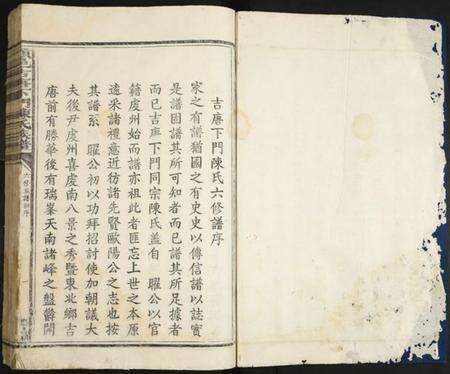 吉唐下門陳氏六修譜序
家之有譜猶國之有史史以傳信譜以誌實
是譜固譜其所可知者而已譜其所足據者
而已吉唐下門同宗陳氏蓋自 曜公以官
籍虔州始而譜亦祖此者匪忘上世之本原
遠采諸禮意近彷諸先賢歐陽公之志也按
其譜系 曜公初以功拜招討使加朝議大
夫後尹虔州喜虔南八景之秀暨東北鄉吉
唐前有騰華後有瑞峯天南諸峰之盤欝開
陳氏族譜
六修族譜序
一